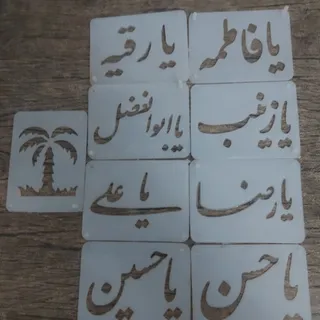 یا فاطمه
یا رقیه
یا زینب
یا ابوالفضل
یا رضا
یا علی
یا حسن
یا حسین